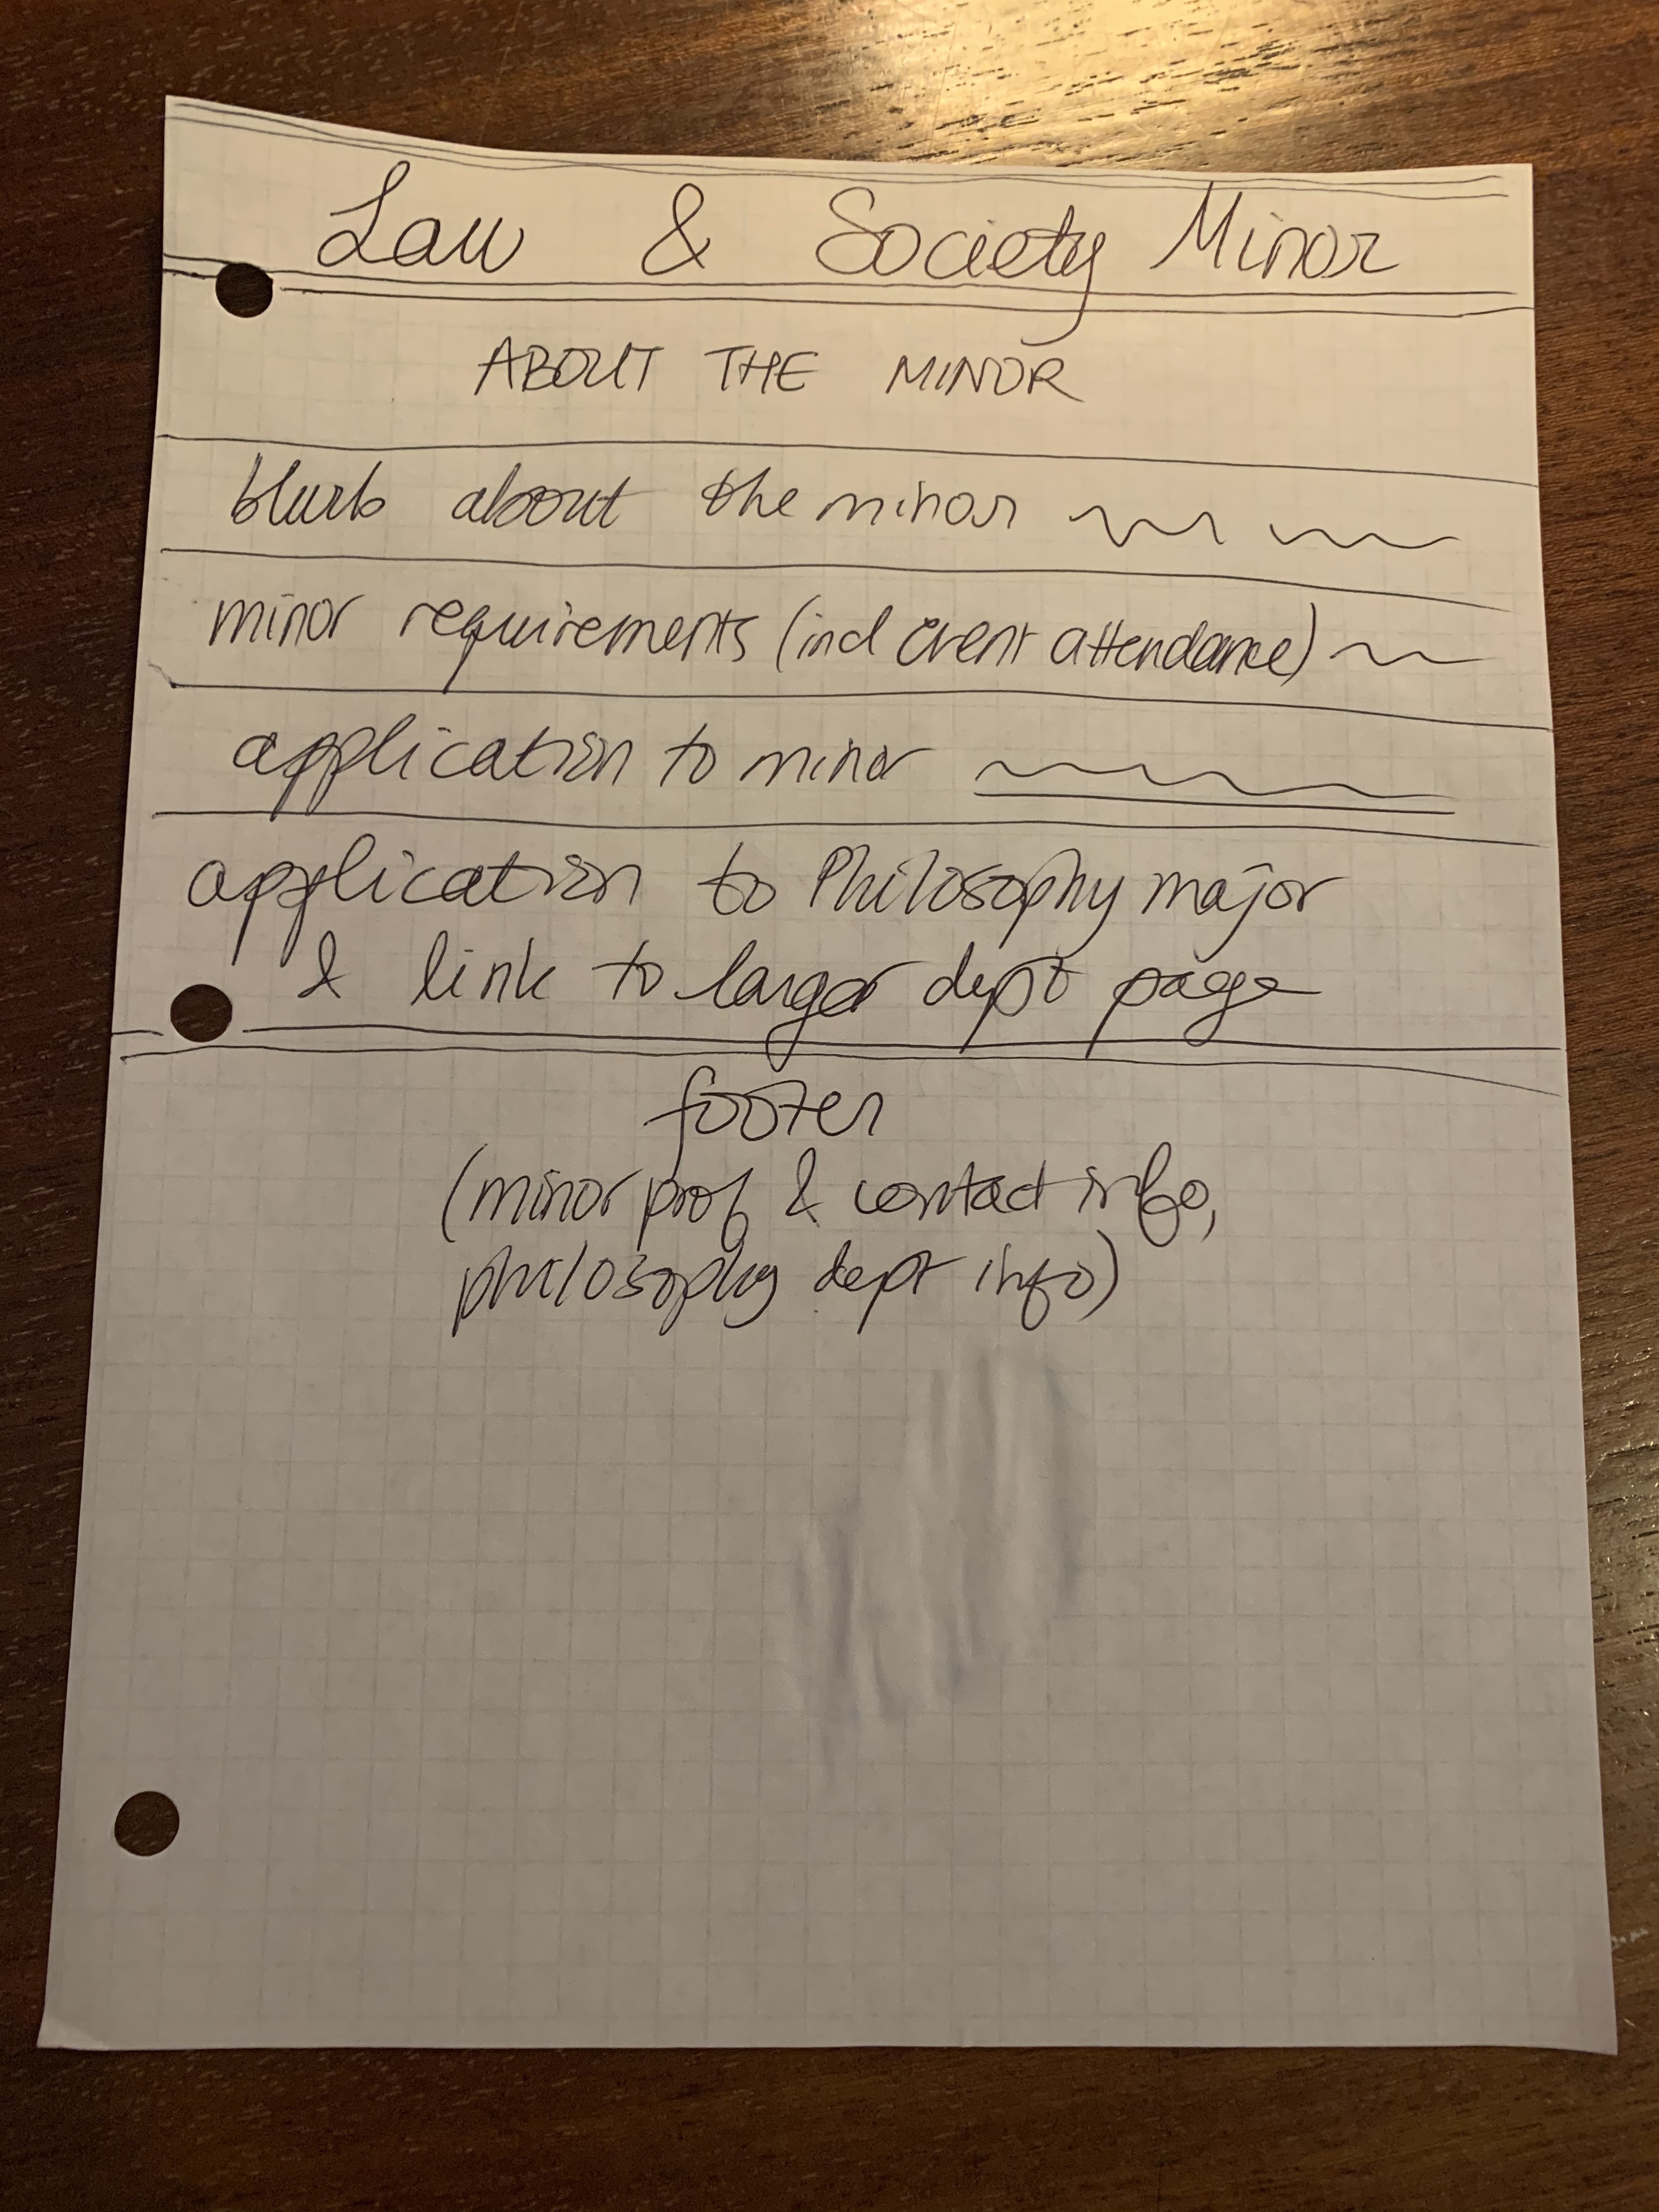 Law & Society Minor
ABOUT THE MINOR
blurb about the minor
minor requirements (incl event attendance)
application to minor
application to Philosophy major
& link to larger dept page
footer
(minor prof & contact info,
philosophy dept info)